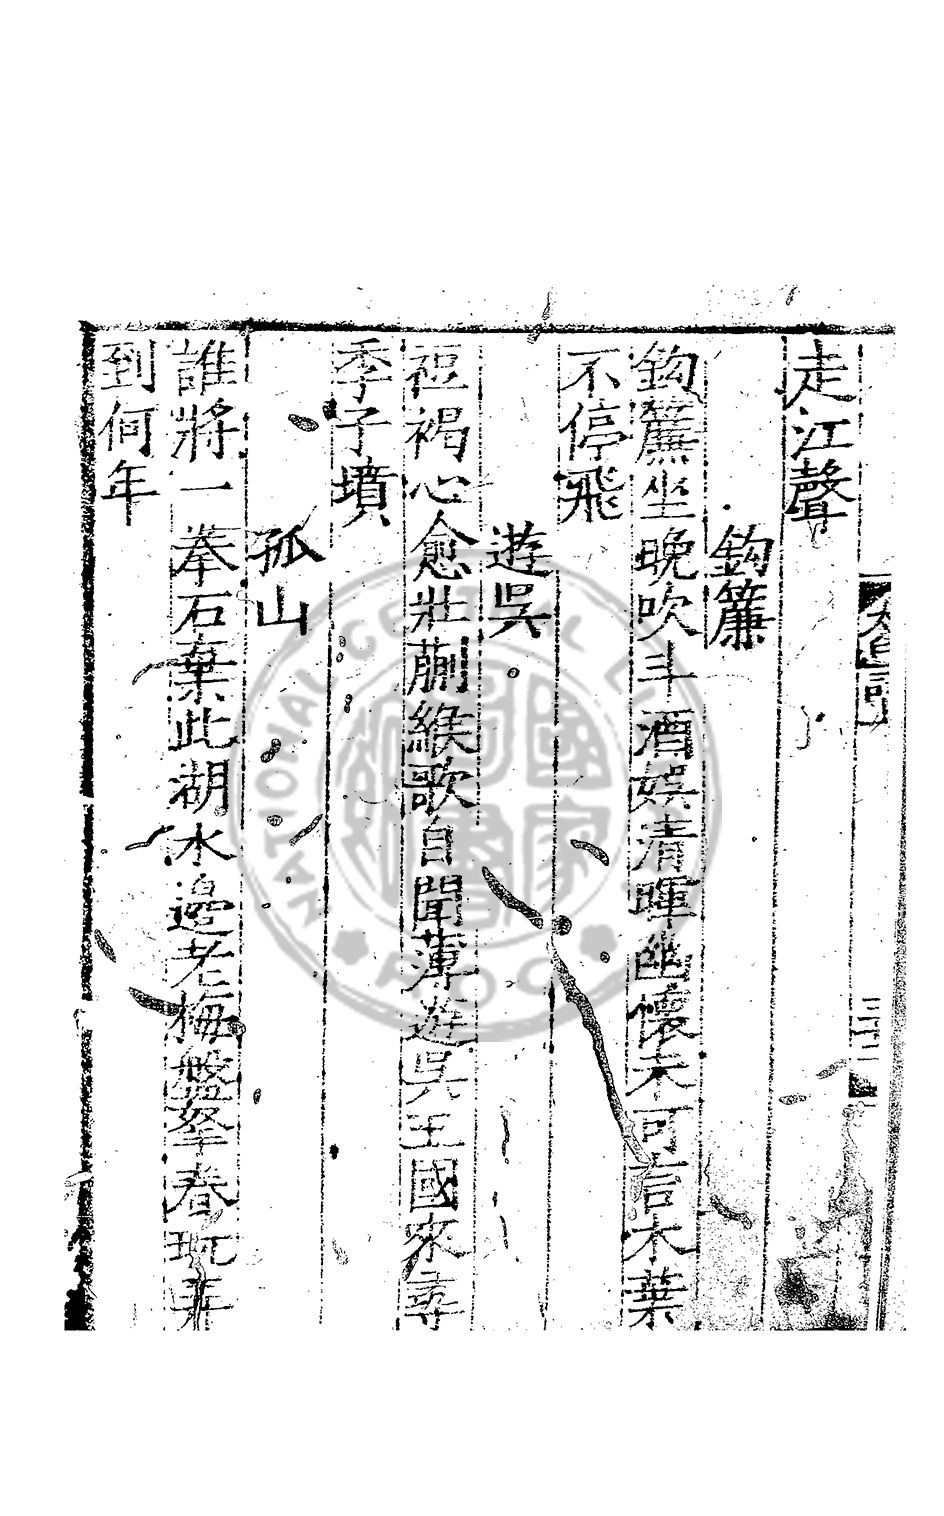 走江聲
鈎簾
鈎簾坐晚吹斗酒娛清暉幽懷未可言木葉
不停飛
遊吳
裋褐心愈壯蒯緱歌自聞薄遊吳王國來尋
季子墳
孤山
誰將一拳石棄此湖水邊老梅盤拏春玩弄
到何年
NATIONAL CENTRAL LIBRARY
R.O.C.